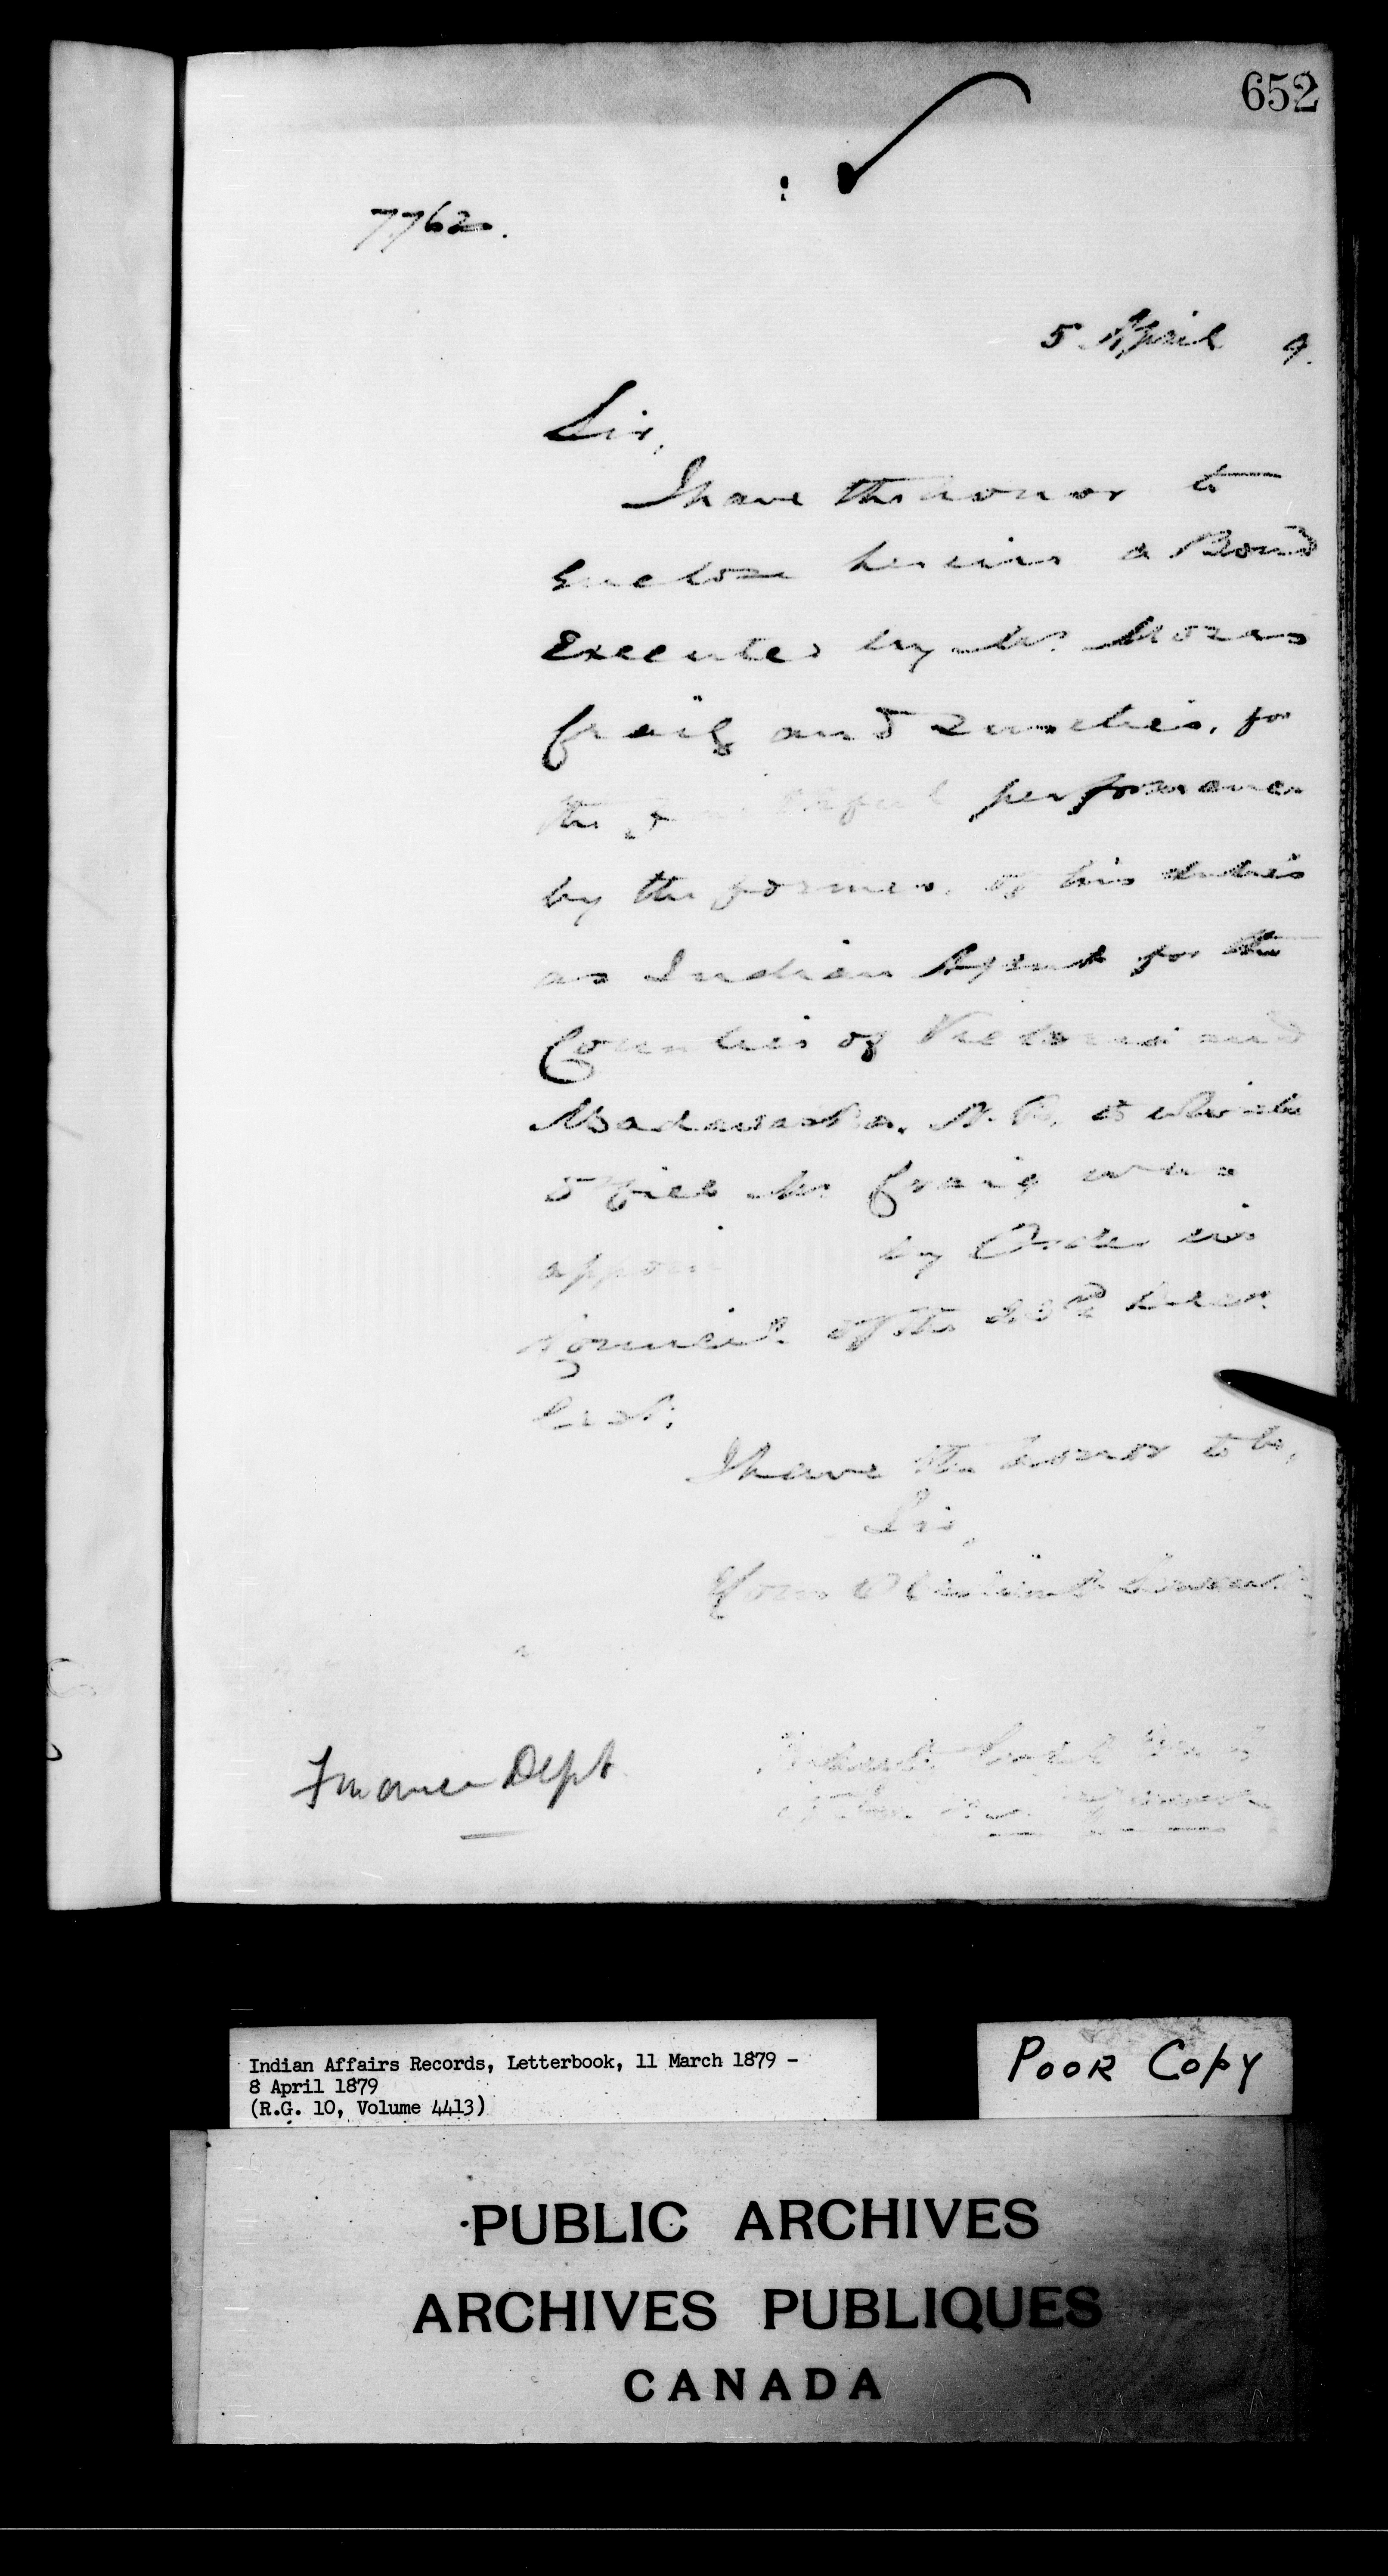 652
7762.
5 April 9.
Sir,
I have the honor to
enclose herein a Bond
Executed by Mr. Moses
Craig and sureties, for
the faithful performance
by the former, of his duties
as Indian Agent for the
Counties of Victoria and
Madawaska, N.B. to which
office Mr Craig was
by Order in
Council of the 23rd Decr.
last.
I have the honor to be,
Sir,
Your Obedient Servant
Finance Dept
Indian Affairs Records, Letterbook, 11 March 1879 -
8 April 1879
(R.G. 10, Volume 4413)
POOR COPY
PUBLIC ARCHIVES
ARCHIVES PUBLIQUES
CANADA